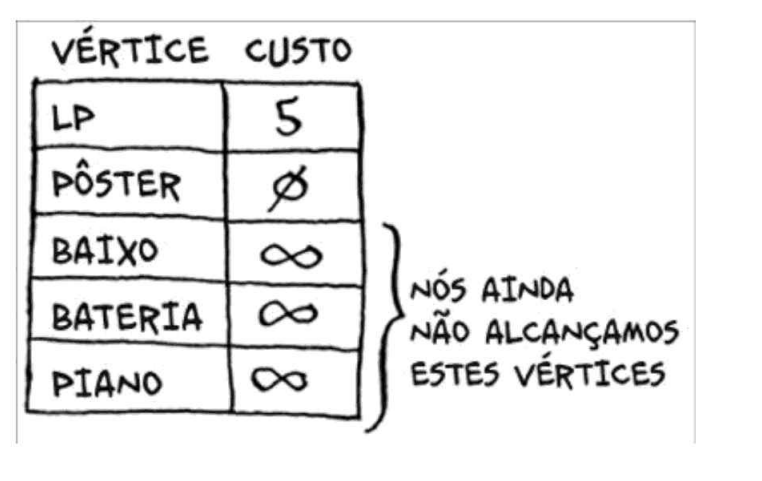 VÉRTICE CUSTO
LP 5
PÔSTER Ø
BAIXO ∞
BATERIA ∞
PIANO ∞
NÓS AINDA
NÃO ALCANÇAMOS
ESTES VÉRTICES